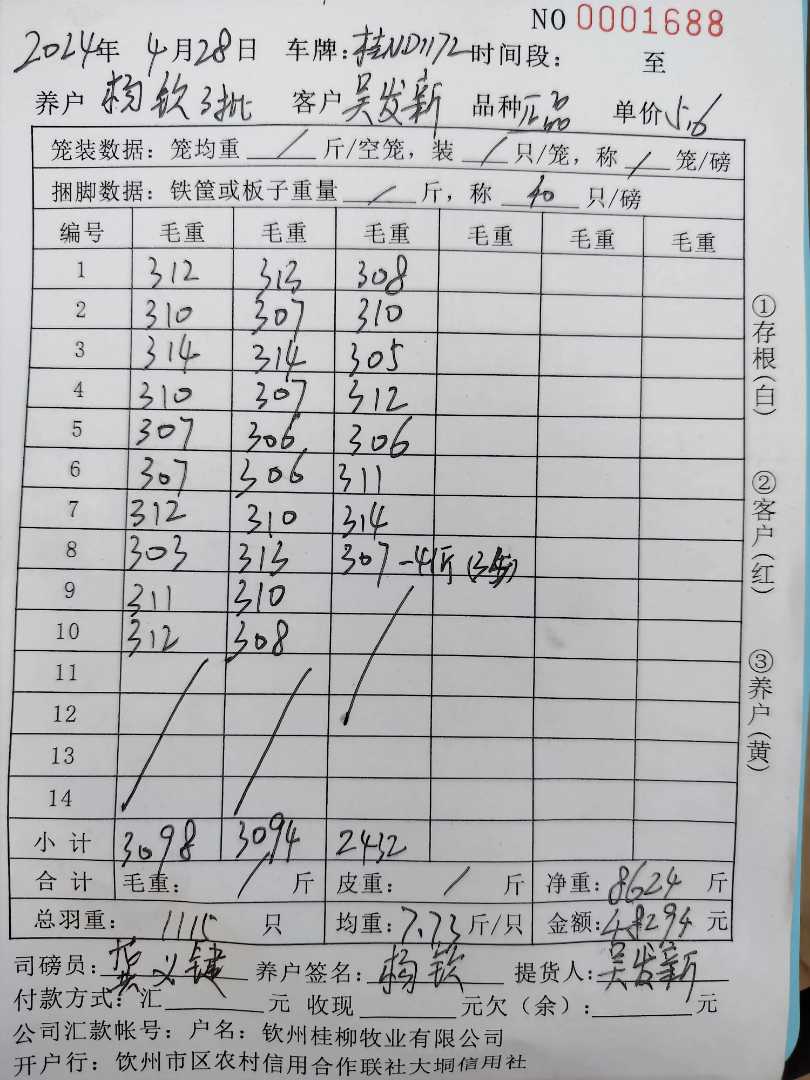 NO 0001688
2024年 4月28日 车牌:桂ND1172 时间段: 至
养户 杨钦3批 客户 吴发新 品种 正品 单价 5.6
笼装数据:笼均重 / 斤/空笼,装 / 只/笼,称 / 笼/磅
捆脚数据:铁筐或板子重量 / 斤,称 40 只/磅
编号 毛重 毛重 毛重 毛重 毛重 毛重
1 312 313 308
2 310 307 310
3 314 314 305
4 310 307 312
5 307 306 306
6 307 306 311
7 312 310 314
8 303 313 307 -41斤
9 311 310
10 312 308
11
12
13
14
小计 3098 3094 2432
合计 毛重: / 斤 皮重: / 斤 净重: 8624 斤
总羽重: 1115 只 均重: 7.73 斤/只 金额: 48294 元
司磅员: 养户签名: 杨钦 提货人: 吴发新
付款方式:汇 元 收现 元欠(余): 元
公司汇款帐号:户名:钦州桂柳牧业有限公司
开户行:饮州市区农村信用合作联社大垌信用社
①存根(白)
②客户(红)
③养户(黄)